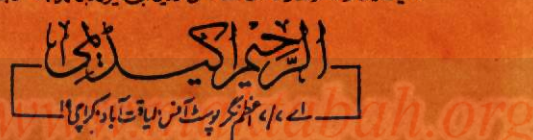 الرحیم اکیڈیمی
اے ۷/۷، اعظم نگر پوسٹ آفس لیاقت آباد، کراچی ۱۹